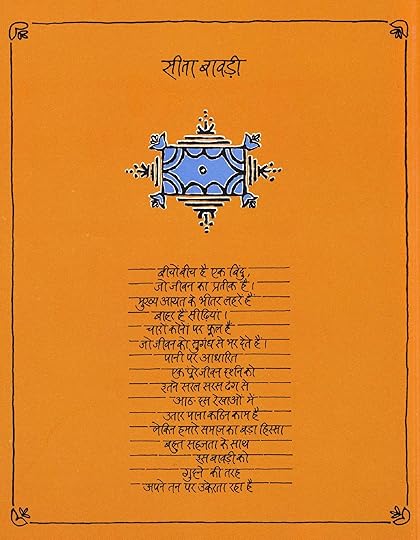 सीता बावड़ी
बीचोंबीच है एक बिंदु,
जो जीवन का प्रतीक है।
मुख्य आयत के भीतर लहरें हैं
बाहर हैं सीढ़ियां।
चारों कोनों पर फूल हैं
जो जीवन को सुगंध से भर देते हैं।
पानी पर आधारित
एक पूरे जीवन दर्शन को
इतने सरल सरस ढंग से
आठ-दस रेखाओं में
उतार पाना कठिन काम है
लेकिन हमारे समाज का बड़ा हिस्सा
बहुत सहजता के साथ
इस बावड़ी को
गुदने की तरह
अपने तन पर उकेरता रहा है